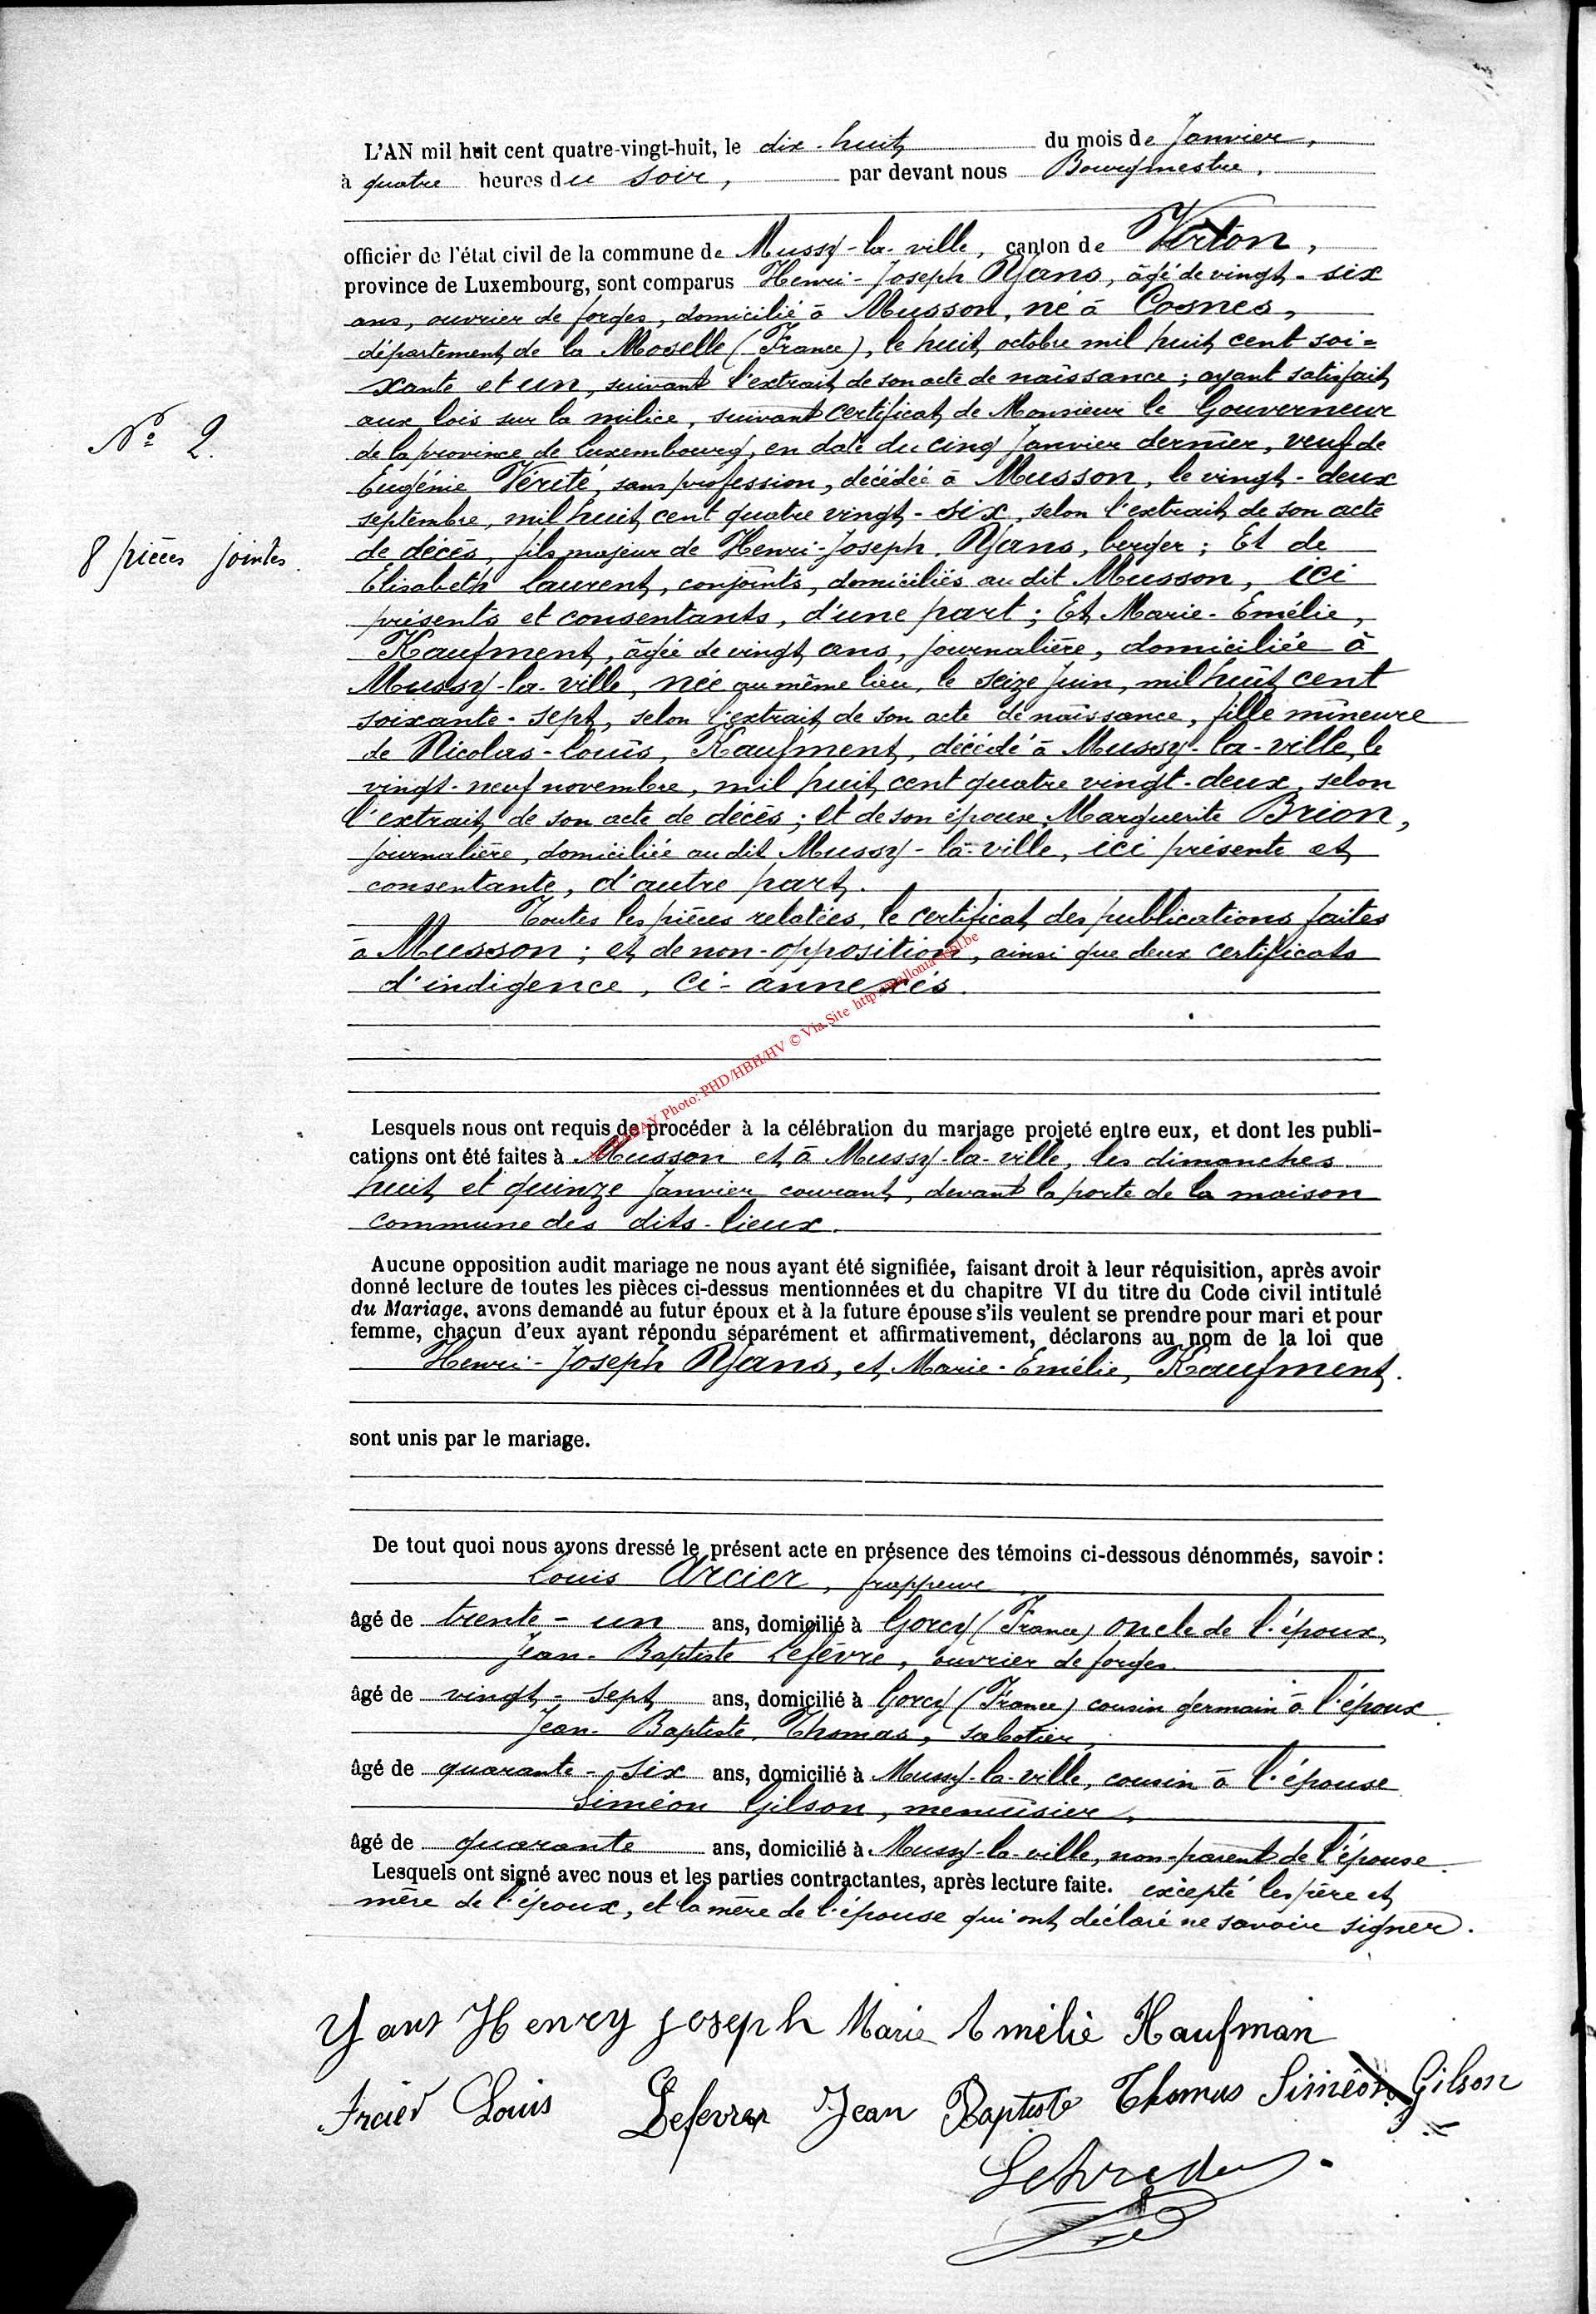 L'AN mil huit cent quatre-vingt-huit, le dix-huit du mois de Janvier,
à quatre heures du soir, par devant nous Bourgmestre,
officier de l'état civil de la commune de Mussy-la-ville, canton de Virton,
province de Luxembourg, sont comparus Henri-Joseph Yans, âgé de vingt-six
ans, ouvrier de forges, domicilié à Musson, né à Cosnes,
département de la Moselle (France), le huit octobre mil huit cent soi=
xante et un, suivant l'extrait de son acte de naissance; ayant satisfait
aux lois sur la milice, suivant certificat de Monsieur le Gouverneur
N° 2.
de la province de Luxembourg, en date du cinq Janvier dernier, veuf de
Eugénie Vérité, sans profession, décédée à Musson, le vingt-deux
septembre, mil huit cent quatre vingt-six, selon l'extrait de son acte
8 pièces jointes.
de décès, fils majeur de Henri-Joseph, Yans, berger; Et de
Elisabeth Laurent, conjoints, domiciliés au dit Musson, ici
présents et consentants, d'une part; Et Marie-Emélie,
Kaufment, âgée de vingt ans, journalière, domiciliée à
Mussy-la-ville, née au même lieu, le seize Juin, mil huit cent
soixante-sept, selon l'extrait de son acte de naissance, fille mineure
de Nicolas-Louis, Kaufment, décédé à Mussy-la-ville, le
vingt-neuf novembre, mil huit cent quatre vingt-deux, selon
l'extrait de son acte de décès; et de son épouse Marguerite Brion,
journalière, domiciliée au dit Mussy-la-ville, ici présente et
consentante, d'autre part.
Toutes les pièces relatées, le certificat des publications faites
à Musson; et de non-opposition, ainsi que deux certificats
d'indigence, ci-annexés.
Photo: PHD/HBH/HV © Via Site
Lesquels nous ont requis de procéder à la célébration du mariage projeté entre eux, et dont les publi-
cations ont été faites à Musson et à Mussy-la-ville, les dimanches
huit et quinze Janvier courant, devant la porte de la maison
commune des dits-lieux.
Aucune opposition audit mariage ne nous ayant été signifiée, faisant droit à leur réquisition, après avoir
donné lecture de toutes les pièces ci-dessus mentionnées et du chapitre VI du titre du Code civil intitulé
du Mariage, avons demandé au futur époux et à la future épouse s'ils veulent se prendre pour mari et pour
femme, chacun d'eux ayant répondu séparément et affirmativement, déclarons au nom de la loi que
Henri-Joseph Yans, et Marie-Emélie, Kaufment.
sont unis par le mariage.
De tout quoi nous avons dressé le présent acte en présence des témoins ci-dessous dénommés, savoir:
Louis Arcier, frappeur
âgé de trente-un ans, domicilié à Gorcy (France) oncle de l'époux,
Jean-Baptiste Lefèvre, ouvrier de forges
âgé de vingt-sept ans, domicilié à Gorcy (France) cousin germain à l'époux.
Jean-Baptiste, Thomas, sabotier,
âgé de quarante-six ans, domicilié à Mussy-la-ville, cousin à l'épouse
Siméon Gilson, menuisier,
âgé de quarante ans, domicilié à Mussy-la-ville, non-parent de l'épouse.
Lesquels ont signé avec nous et les parties contractantes, après lecture faite. excepté les père et
mère de l'époux, et la mère de l'épouse qui ont déclaré ne savoir signer.
Yans Henry joseph Marie Emélie Kaufman
Louis Jean Baptiste Thomas Siméon Gilson